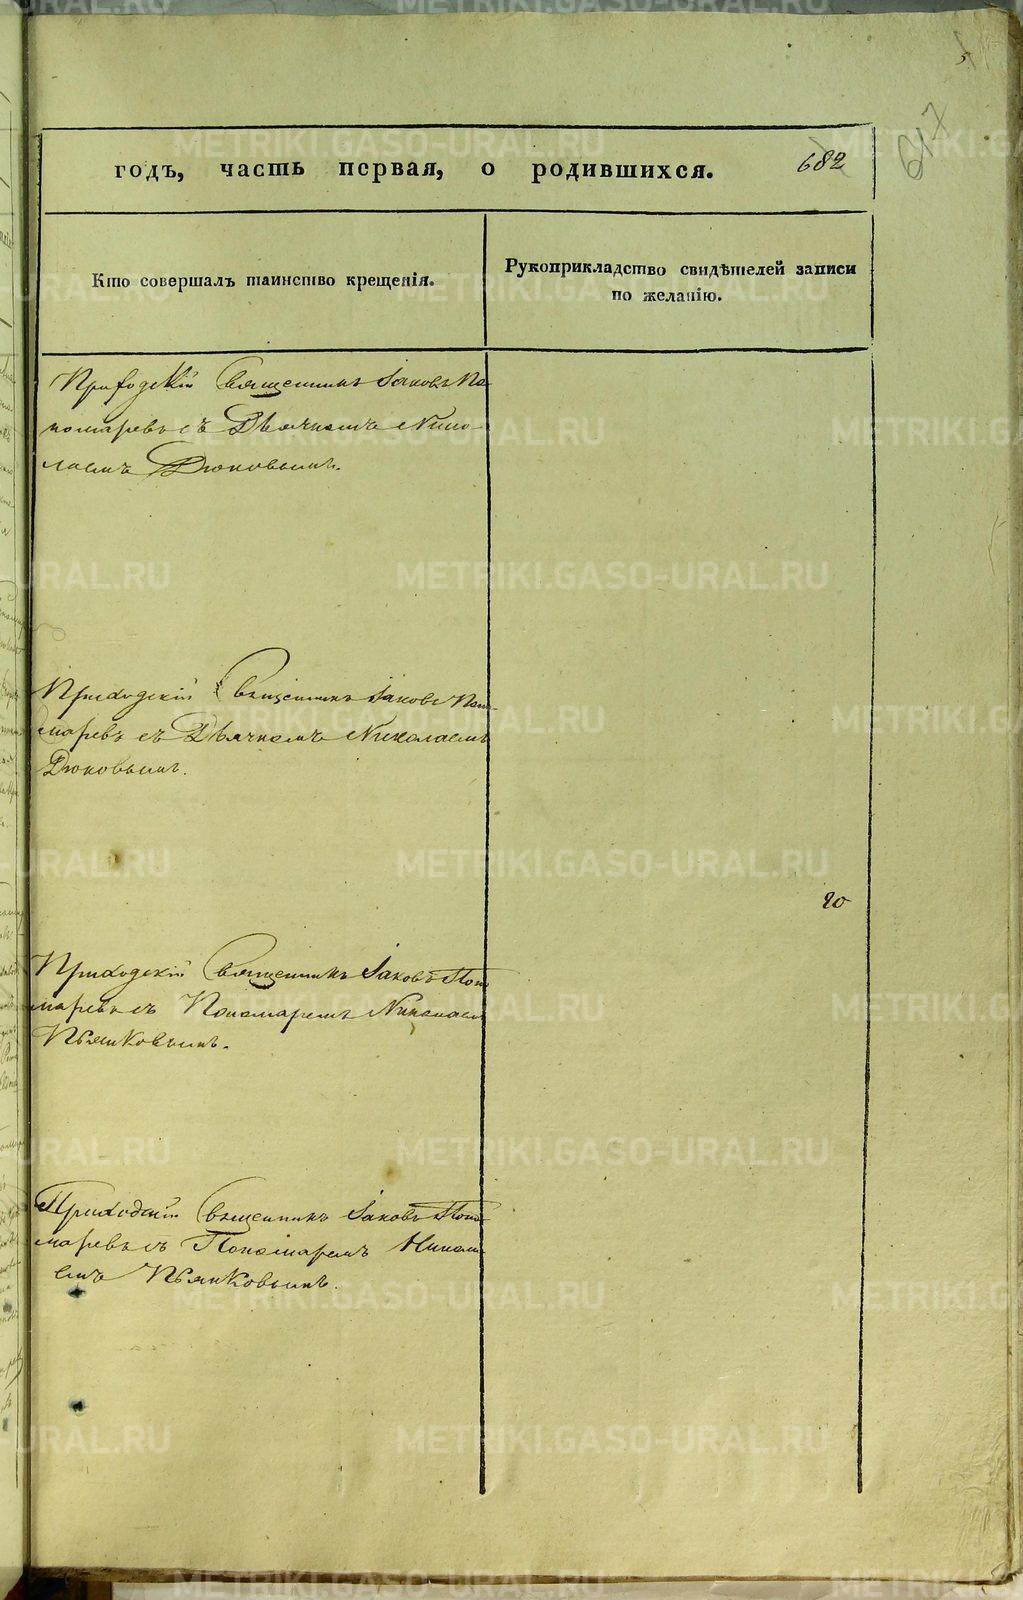 617
годъ, часть первая, о родившихся. 682
Кто совершалъ таинство крещенія.
Рукоприкладство свидѣтелей записи
по желанію.
Приходскій Священникъ Іаковъ По-
номаревъ съ Дьячкомъ Нико-
лаемъ Дюковымъ.
Приходскій Священникъ Іаковъ Поно-
маревъ съ Дьячкомъ Николаемъ
Дюковымъ.
20
Приходскій Священникъ Іаковъ Поно-
маревъ съ Пономаремъ Николаемъ
Пьянковымъ.
Приходскій Священникъ Іаковъ Поно-
маревъ съ Пономаремъ Никола-
емъ Пьянковымъ.
METRIKI.GASO-URAL.RU